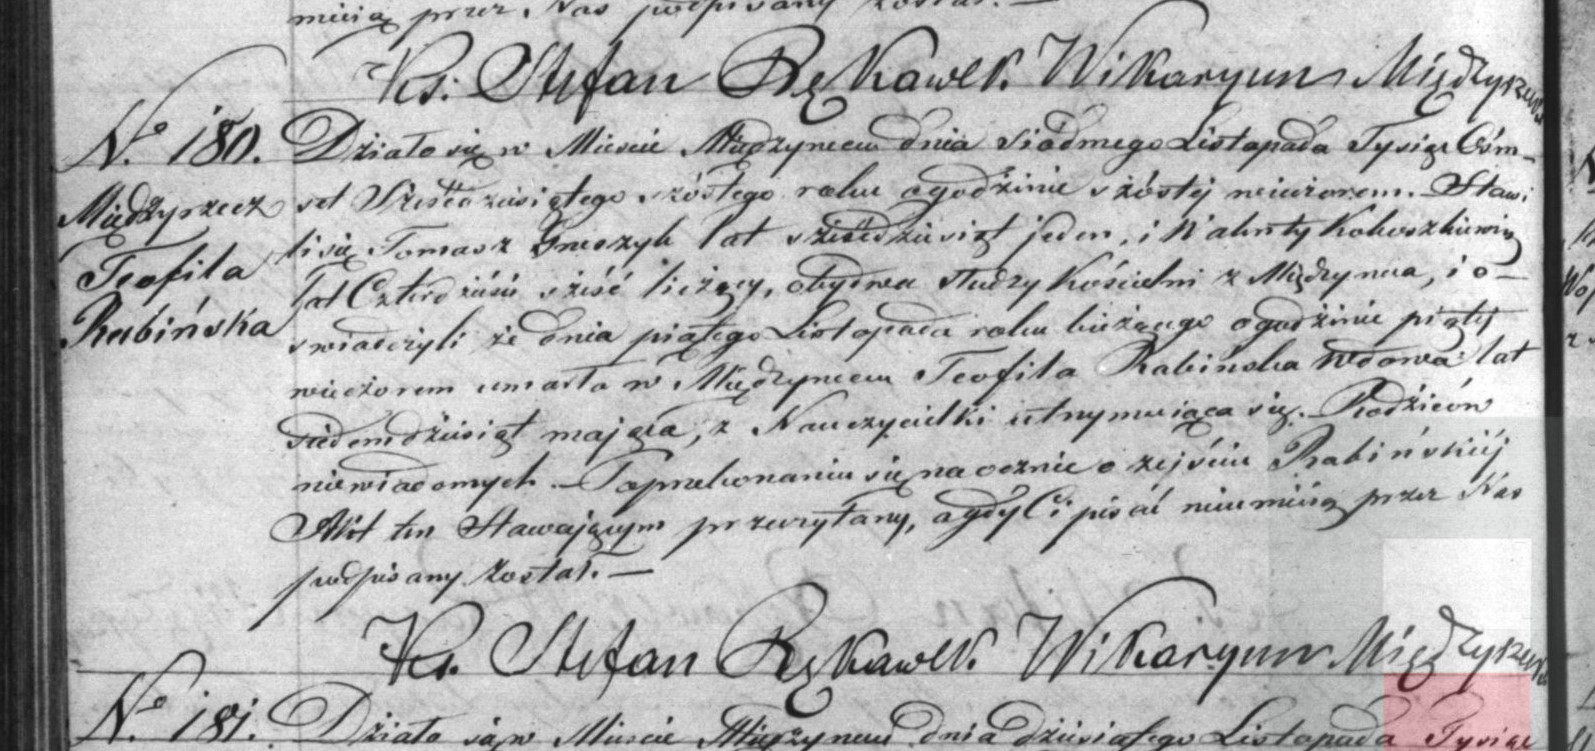 mieią przez Nas podpisany został. —
Ks. Stefan Rękawek. Wikaryusz Międzyrzecki
N° 180.
Międzyrzecz
Teofila
Rabińska
Działo się w Mieście Międzyrzecu dnia siódmego Listopada Tysiąc Ośm-
set Sześćdziesiątego szóstego roku o godzinie szóstej wieczorem. Stawi
li się Tomasz lat sześćdziesiąt jeden, i Walenty
lat Czterdzieści sześć liczący, obydwa słudzy Kościelni z Międzyrzeca, i o-
świadczyli że dnia piątego Listopada roku bieżącego o godzinie piątej
wieczorem umarła w Międzyrzecu Teofila Rabińska wdowa lat
siedemdziesiąt mająca, z Nauczycielki utrzymująca się. Rodziców
niewiadomych. — Po przekonaniu się naocznie o zejściu Rabińskiéj
Akt ten Stawającym przeczytany, a gdy Ci pisać nieumieią przez Nas
podpisany został. —
Ks. Stefan Rękawek. Wikaryusz Międzyrzecki
N° 181.
Działo się w Mieście Międzyrzecu dnia dziesiątego Listopada Tysiąc